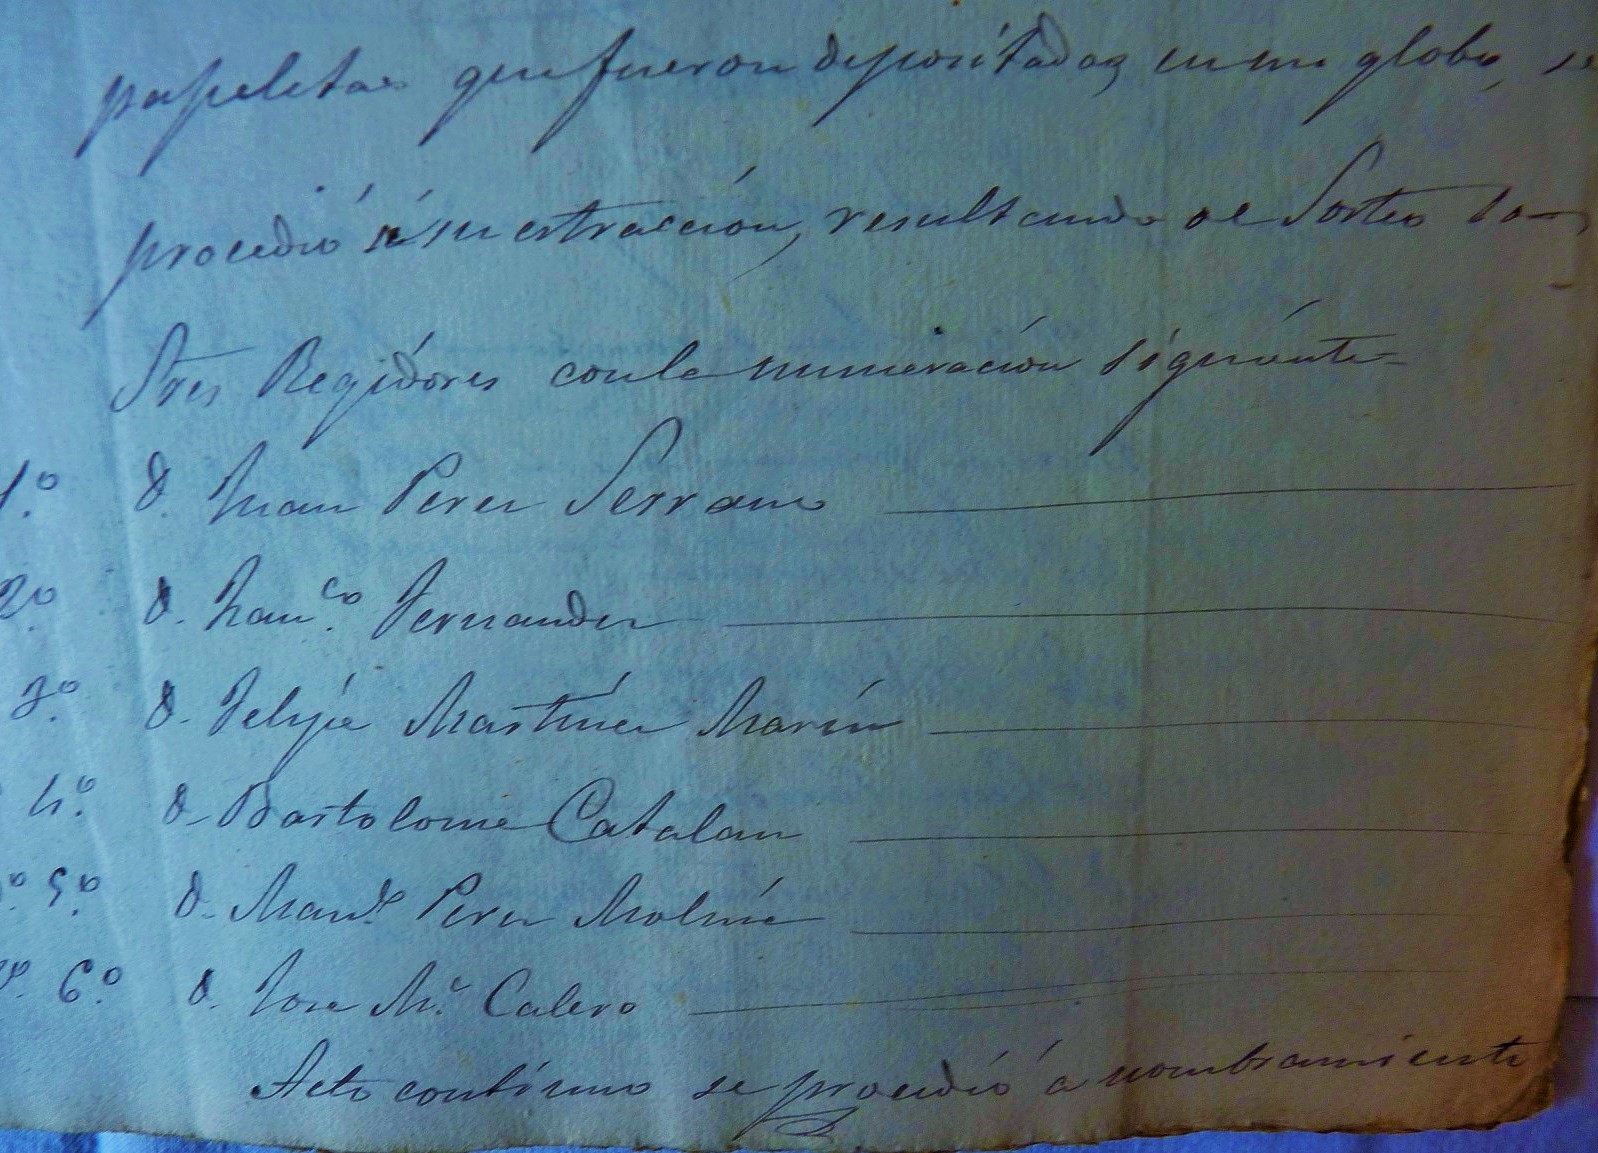 papeletas que fueron depositadas en un globo, se
procedió á su estracción, resultando de Sorteo los
Sres Regidores con la numeración siguiente=
1.º D. Juan Perez Serrano
2.º D. Fran.co Fernandez
3.º D. Felipe Martinez Marín
4.º D. Bartolomé Catalan
5.º D. Man.l Perez Molina
6.º D. Jose M.ª Calero
Acto contínuo se procedió á nombramiento